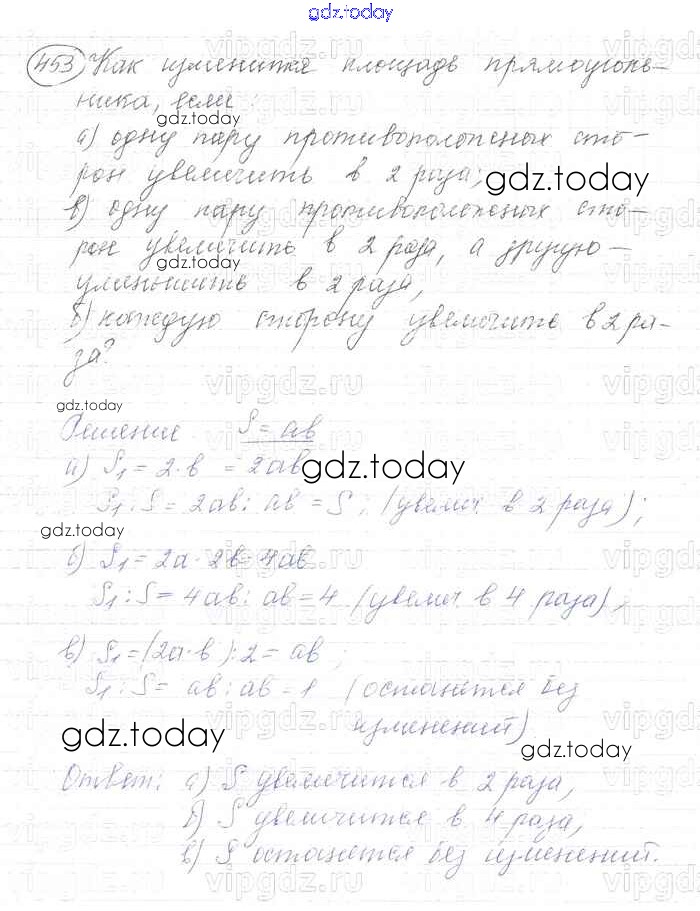 gdz.today
453 Как изменится площадь прямоуголь-
ника, если:
gdz.today
а) одну пару противоположных сто-
рон увеличить в 2 раза;
gdz.today
в) одну пару противоположных сто-
рон увеличить в 2 раза, а другую
gdz.today
уменьшить в 2 раза,
б) каждую сторону увеличить в 2 ра-
за?
gdz.today
Решение S = ab
а) S₁ = 2·b = 2ab
gdz.today
S₁ : S = 2ab : ab = S; (увелич в 2 раза);
gdz.today
б) S₁ = 2a · 2b = 4ab
S₁ : S = 4ab : ab = 4 (увелич в 4 раза),
в) S₁ = (2a·b) : 2 = ab ;
S₁ : S = ab : ab = 1 (останится без
изменений)
gdz.today
gdz.today
Ответ: а) S увеличится в 2 раза,
б) S увеличится в 4 раза,
в) S останется без изменений.
vipgdz.ru